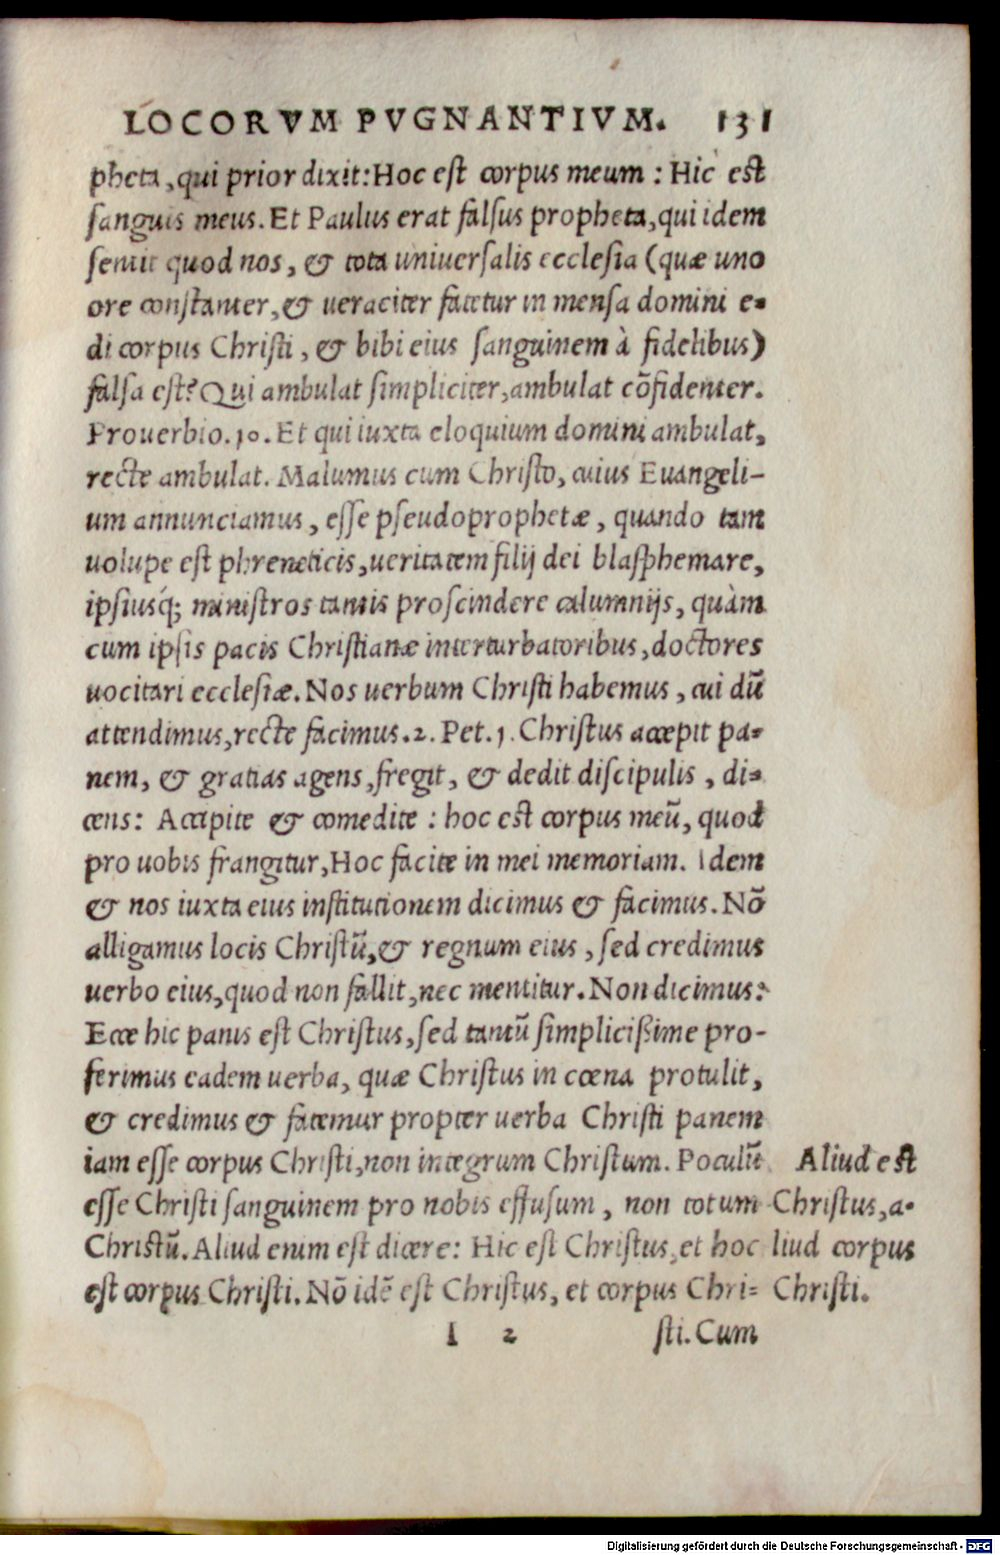 LOCORVM PVGNANTIVM. 131
pheta, qui prior dixit: Hoc est corpus meum : Hic est
sanguis meus. Et Paulus erat falsus propheta, qui idem
sentit quod nos, & tota uniuersalis ecclesia (quæ uno
ore constanter, & ueraciter fatetur in mensa domini e-
di corpus Christi, & bibi eius sanguinem à fidelibus)
falsa est? Qui ambulat simpliciter, ambulat cõfidenter.
Prouerbio. 10. Et qui iuxta eloquium domini ambulat,
recte ambulat. Malumus cum Christo, cuius Euangeli-
um annunciamus, esse pseudoprophetæ, quando tam
uolupe est phreneticis, ueritatem filij dei blasphemare,
ipsiusq́; ministros tantis proscindere calumnijs, quàm
cum ipsis pacis Christianæ interturbatoribus, doctores
uocitari ecclesiæ. Nos uerbum Christi habemus, cui dũ
attendimus, recte facimus. 2. Pet. 1. Christus accepit pa-
nem, & gratias agens, fregit, & dedit discipulis, di-
cens: Accipite & comedite : hoc est corpus meũ, quod
pro uobis frangitur, Hoc facite in mei memoriam. Idem
& nos iuxta eius institutionem dicimus & facimus. Nõ
alligamus locis Christũ, & regnum eius, sed credimus
uerbo eius, quod non fallit, nec mentitur. Non dicimus:
Ecce hic panis est Christus, sed tantũ simplicißime pro-
ferimus eadem uerba, quæ Christus in cœna protulit,
& credimus & fatemur propter uerba Christi panem
iam esse corpus Christi, non integrum Christum. Poculũ
esse Christi sanguinem pro nobis effusum, non totum
Christũ. Aliud enim est dicere: Hic est Christus, et hoc
est corpus Christi. Nõ idẽ est Christus, et corpus Chri-
Aliud est
Christus, a-
liud corpus
Christi.
I 2 sti. Cum
Digitalisierung gefördert durch die Deutsche Forschungsgemeinschaft - DFG